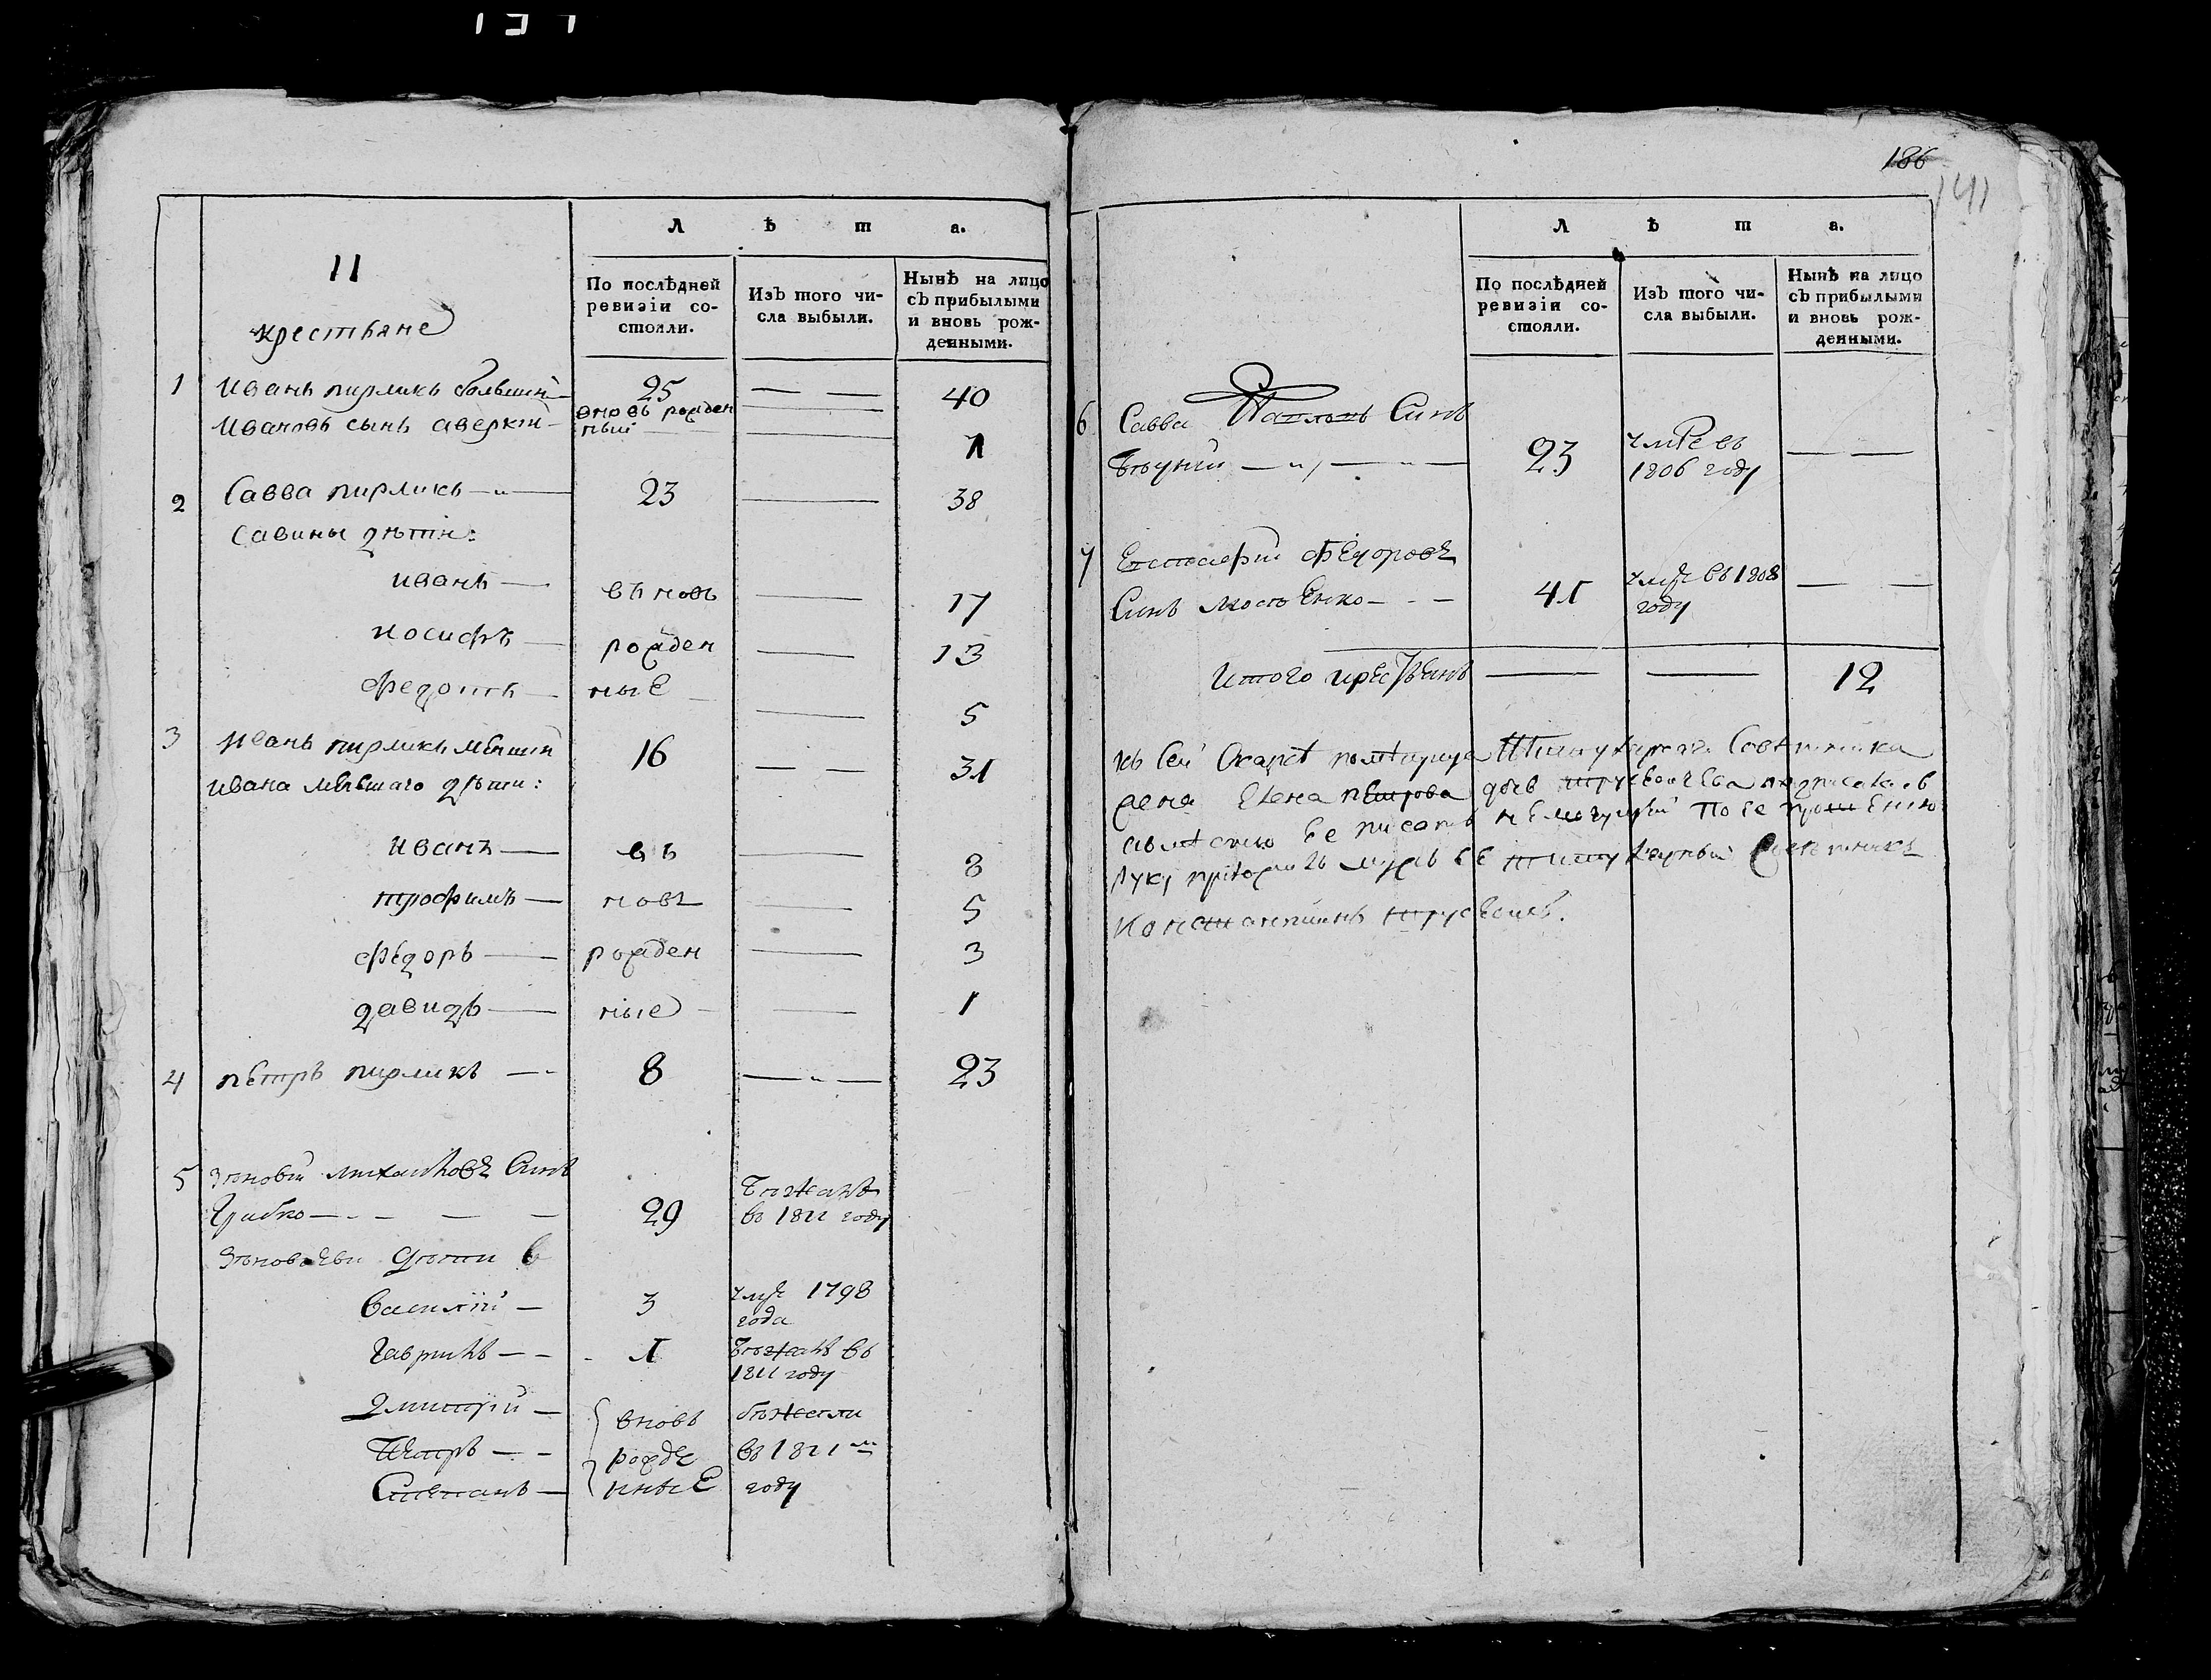 186
141
Л ѣ т а.
По послѣдней ревизіи состояли.
Изъ того числа выбыли.
Нынѣ на лицо съ прибылыми и вновь рожденными.
11
крестьяне
1 Иванъ пирликъ большій — 25 — — 40
Ивановъ сынъ аверкій — вновь рожден
ный — 1
2 Савва пирликъ — 23 — 38
Савины дѣти:
иванъ — въ новь — 17
иосифъ — рожден — 13
федотъ — ные — 5
3 Иванъ пирликъ меншій 16 — — 31
Ивана меньшаго дѣти:
иванъ — въ — 8
трофимъ — новь — 5
федоръ — рожден — 3
давидъ — ные — 1
4 петръ пирликъ — 8 — 23
5 Зѣновій михайловъ Синъ
Грибко — 29 бѣжалъ
въ 1811 году
дѣти
Василій — 3 умре 1798
года
Гаврилъ — 1 бѣжалъ въ
1811 году
Дмитрій — вновь бѣжали
Петръ — рожде въ 1811 м
Степанъ — нные году
Л ѣ т а.
По послѣдней ревизіи состояли.
Изъ того числа выбыли.
Нынѣ на лицо съ прибылыми и вновь рожденными.
6 Савва Синъ
23 умре въ
1806 году — —
7 Евстафій Федоровъ
Синъ — 41 умре въ 1808
году — —
Итого крестьянъ — — 12
Къ сей помѣщица Титулярнаго Совѣтника
Елена Петрова
ее писать не могущей По ее прошенію
руку приложилъ мужъ ее титулярный Совѣтникъ
Константинъ